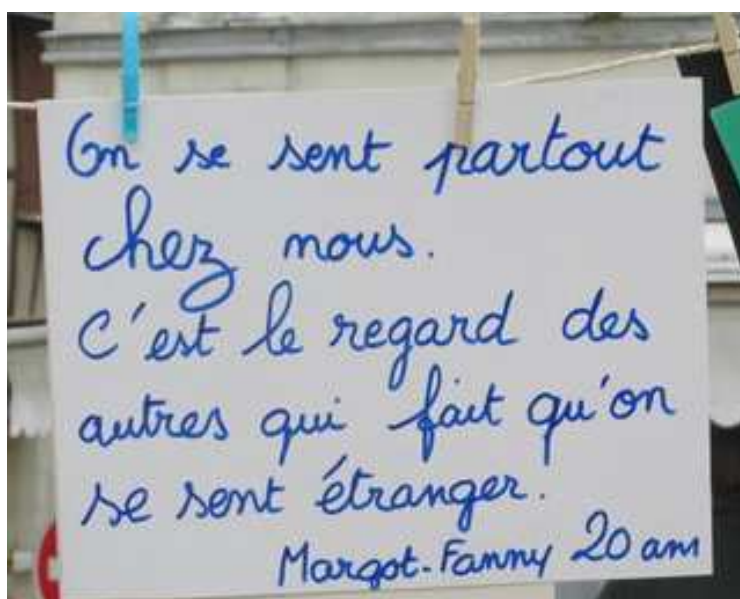 On se sent partout
chez nous.
C'est le regard des
autres qui fait qu'on
se sent étranger.
Margot-Fanny 20 ans